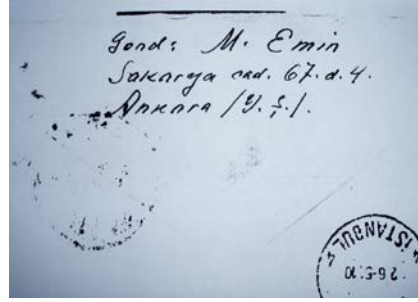 Gönd: M. Emin
Sakarya cad. 67. d. 4.
Ankara (Y. Ş.).
İSTANBUL 4
26.5.10